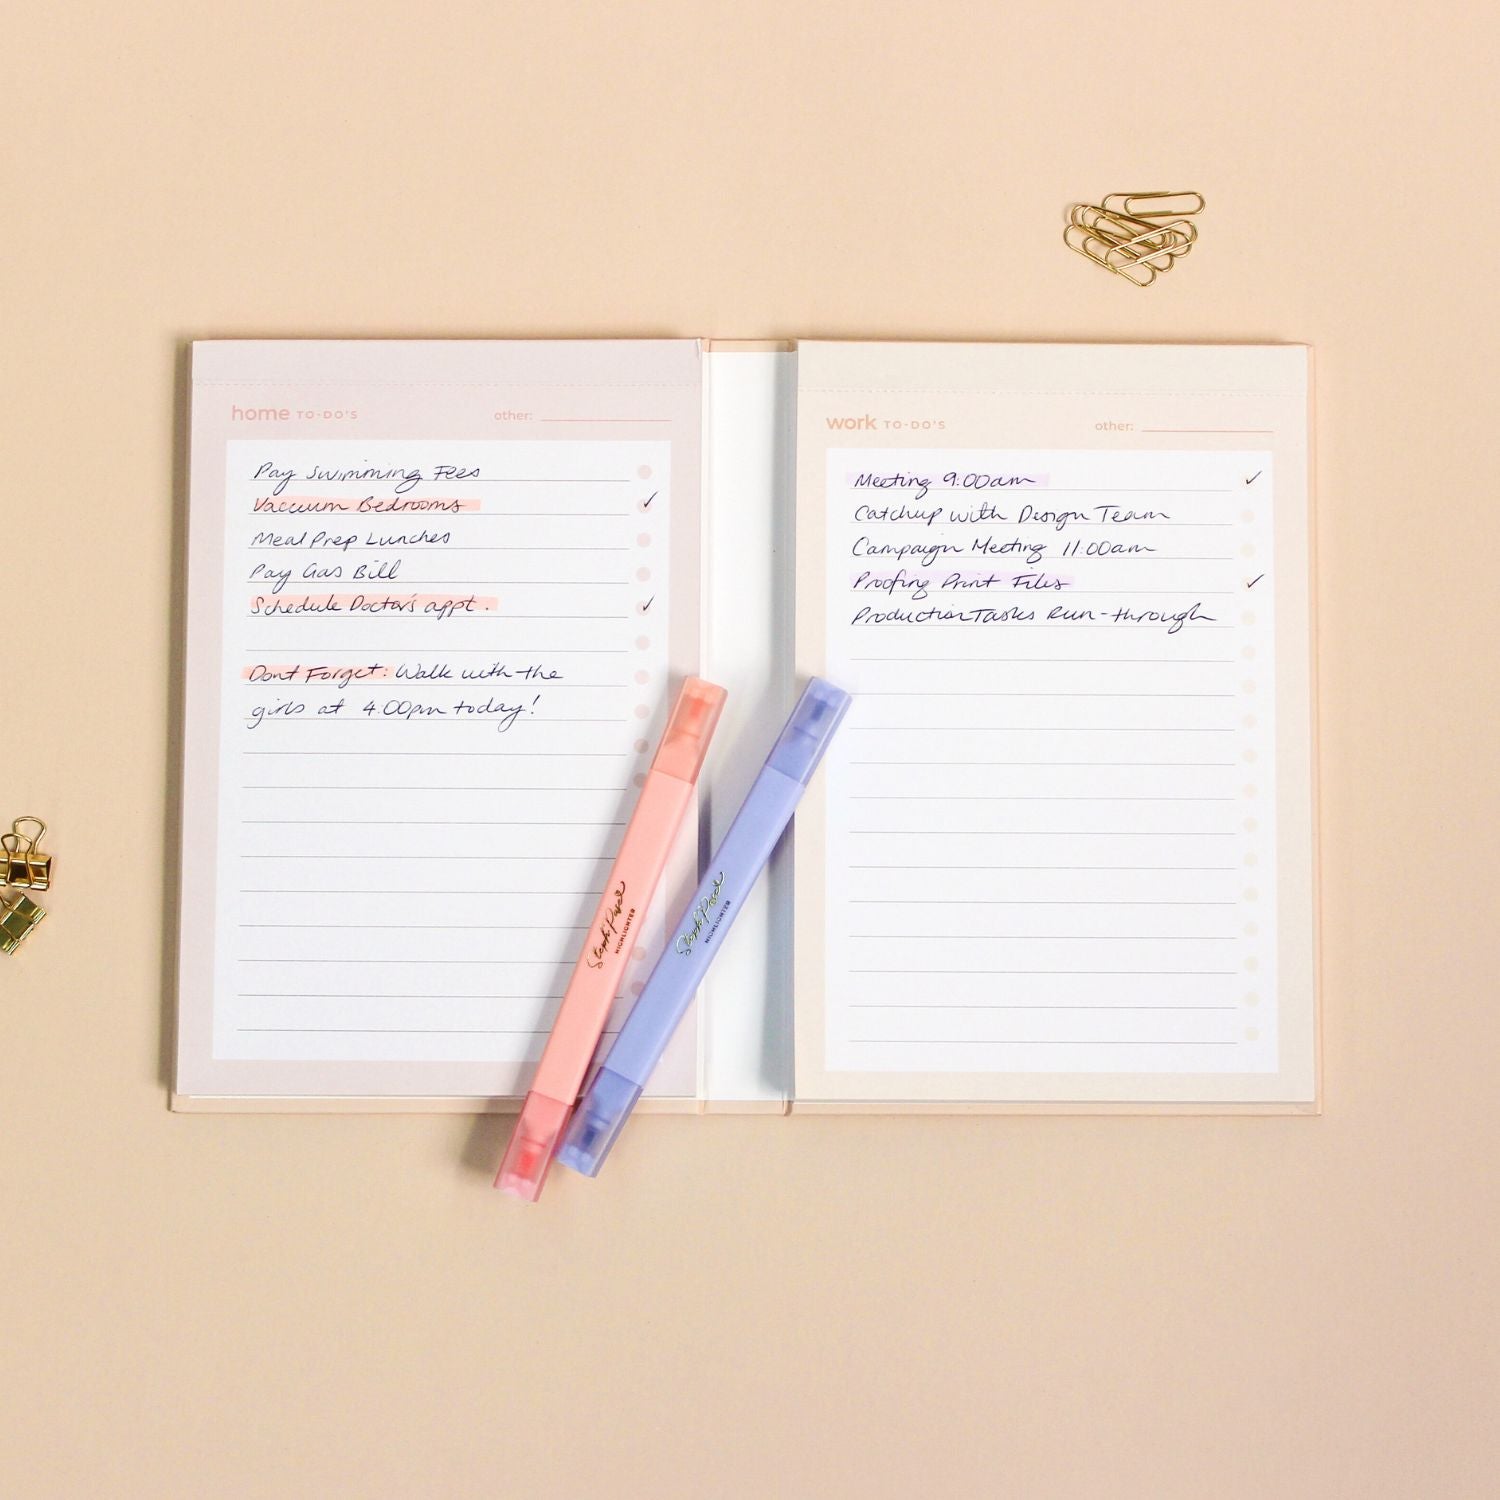 home TO-DO'S other:
Pay Swimming Fees
Vacuum Bedrooms ✓
Meal Prep Lunches
Pay Gas Bill
Schedule Doctor's appt. ✓
Dont Forget: Walk with the
girls at 4:00pm today!
work TO-DO'S other:
Meeting 9:00am ✓
Catchup with Design Team
Campaign Meeting 11:00am
Proofing Print Files ✓
Production Tasks Run-through
Steph Pase
HIGHLIGHTER
Steph Pase
HIGHLIGHTER